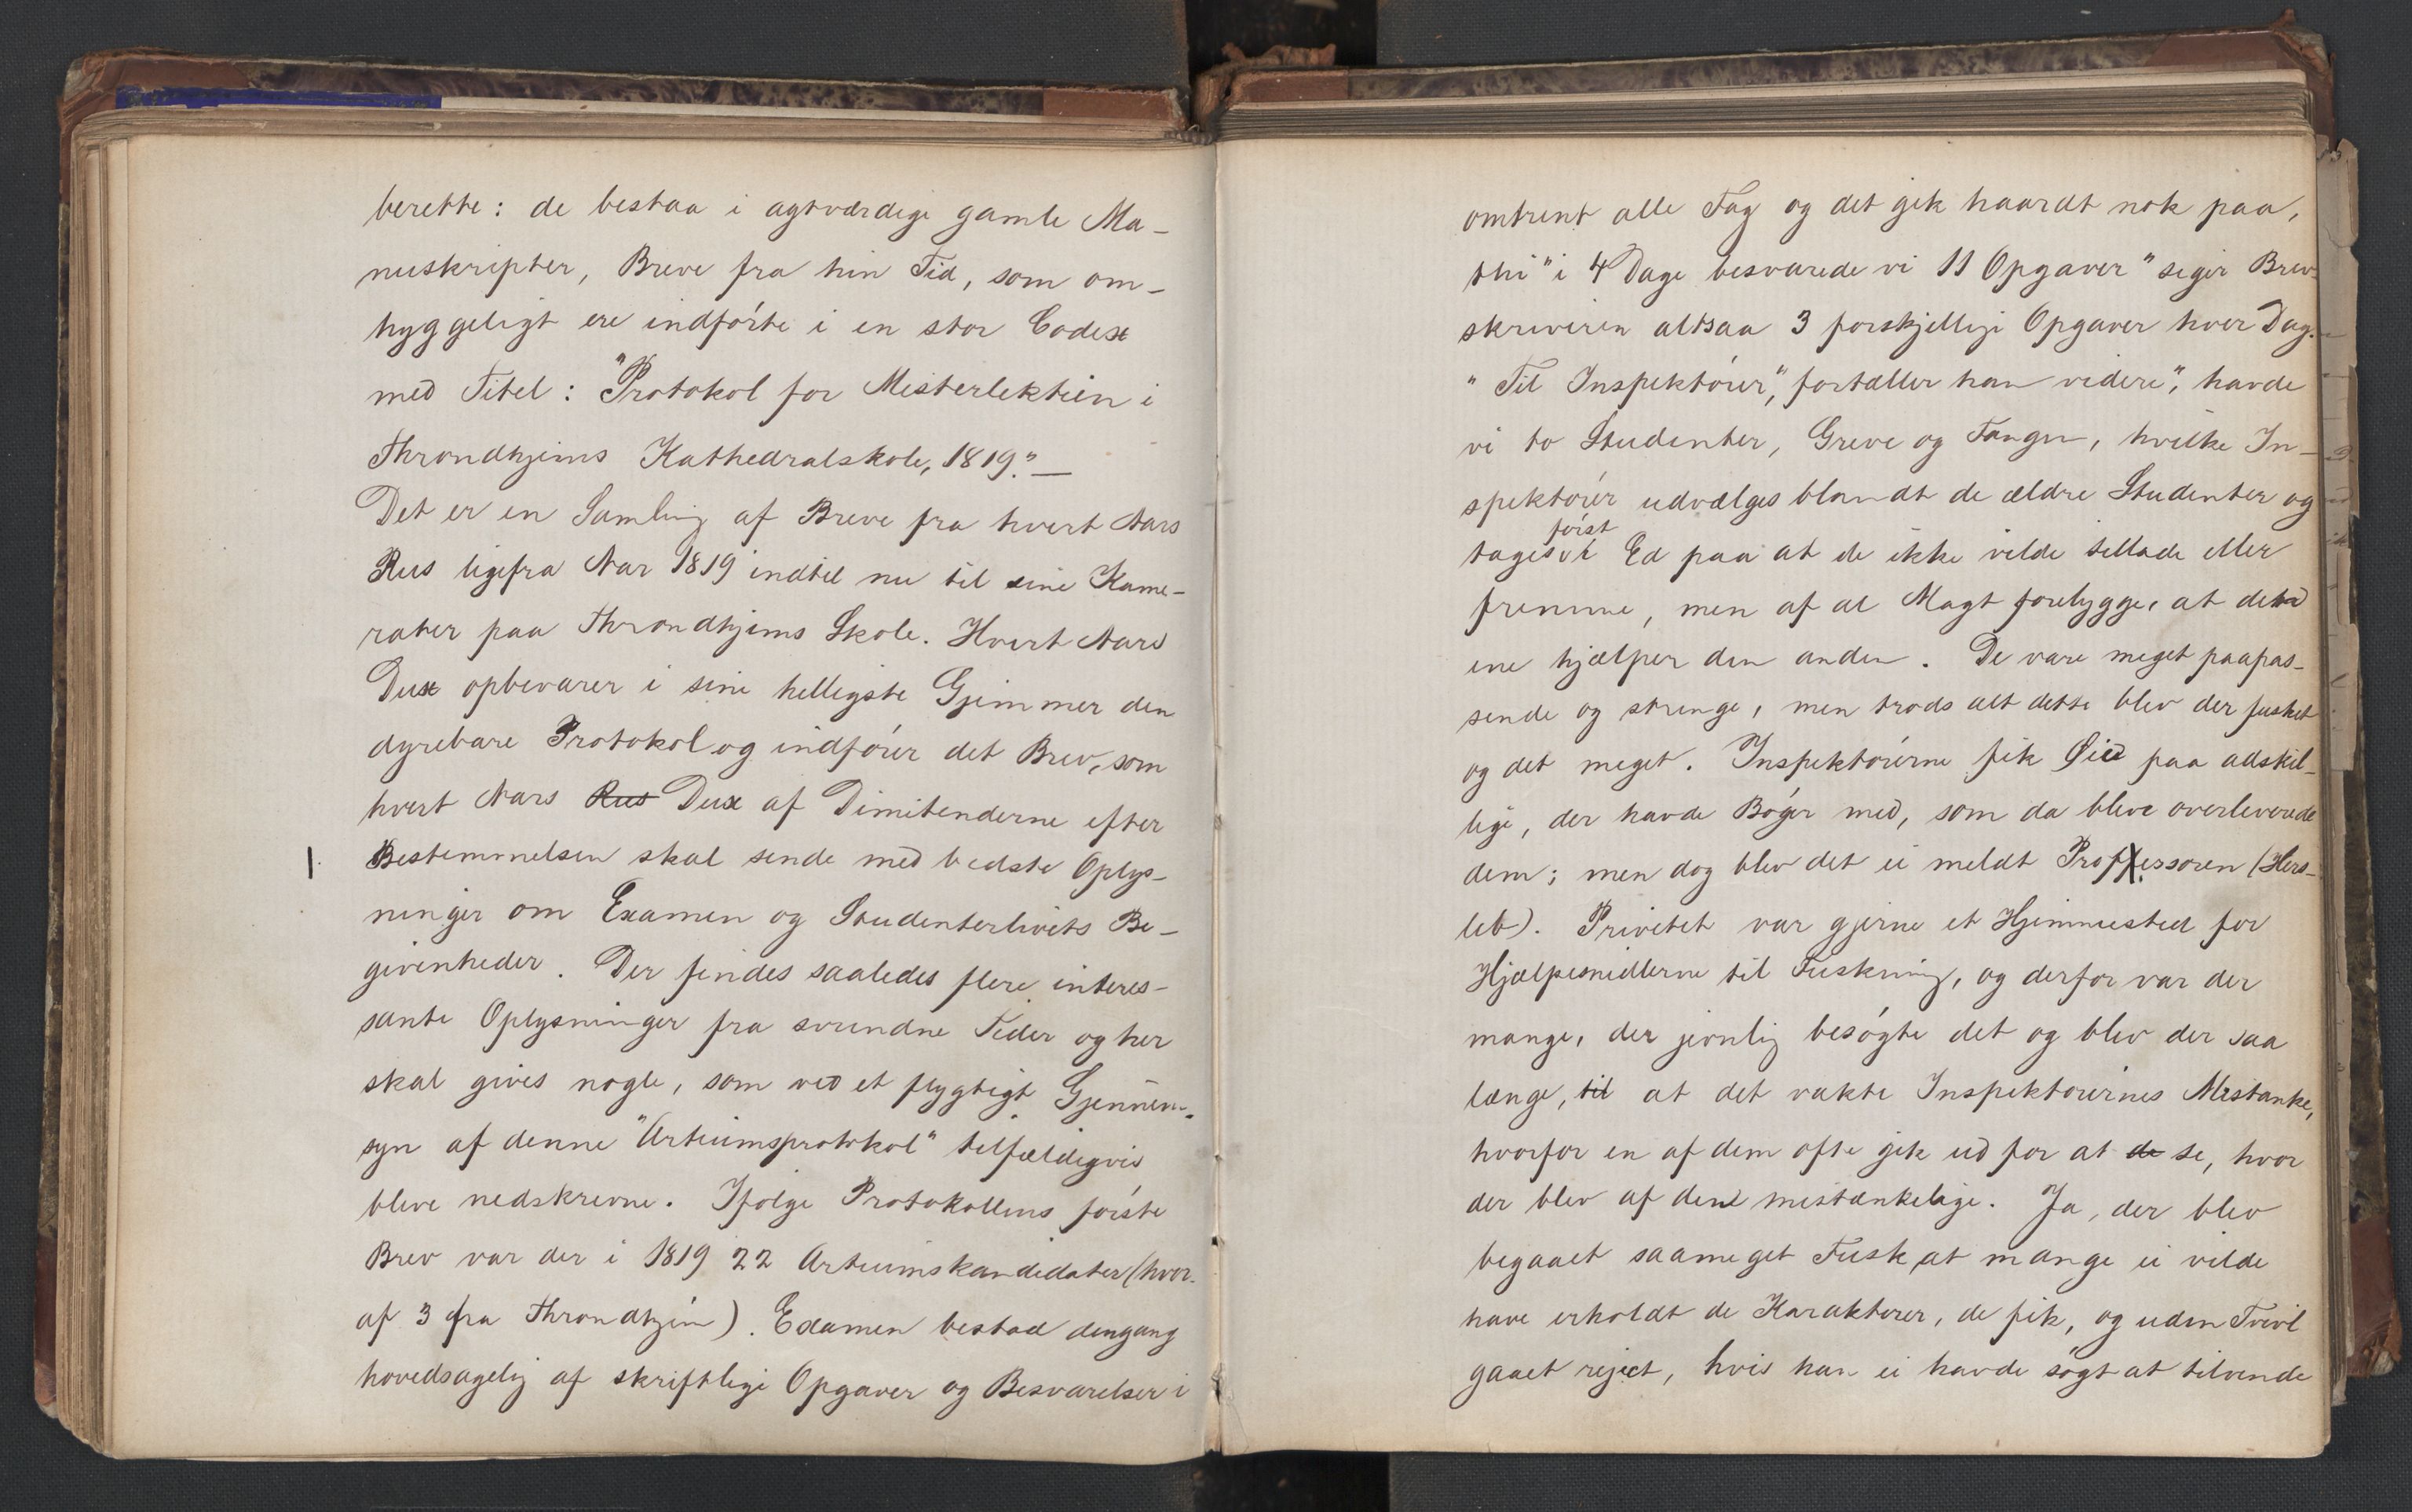 berette: de bestaa i agtværdige gamle Ma-
nuskripter, Breve fra hin Tid, som om-
hyggeligt ere indførte i en stor Codex
med Titel: "Protokol for Mesterlektien i
Throndhjems Kathedralskole, 1819." —
Det er en Samling af Breve fra hvert Aars
Rus ligefra Aar 1819 indtil nu til sine Kame-
rater paa Throndhjems Skole. Hvert Aars
Dux opbevarer i sine helligste Gjemmer den
dyrebare Protokol og indfører det Brev, som
hvert Aars Rus Dux af Dimitenderne efter
Bestemmelsen skal sende med bedste Oplys-
ninger om Examen og Studenterlivets Be-
givenheder. Der findes saaledes flere interes-
sante Oplysninger fra svundne Tider og her
skal gives nogle, som ved et flygtigt Gjennem-
syn af denne "Artiumsprotokol" tilfældigvis
bleve nedskrevne. Ifølge Protokollens første
Brev var der i 1819 22 Artiumskandidater (hvor-
af 3 fra Throndhjem). Examen bestod dengang
hovedsagelig af skriftlige Opgaver og Besvarelser i
omtrent alle Fag og det gik haardt nok paa,
thi "i 4 Dage besvarede vi 11 Opgaver" siger Brev-
skriveren altsaa 3 forskjellige Opgaver hver Dag.
"Til Inspektører", fortæller han videre", havde
vi to Studenter, Greve og Tangen, hvilke In-
spektører udvælges blandt de ældre Studenter og
først
tages i Ed paa at de ikke vilde tillade eller
fremme, men af al Magt forebygge, at den
ene hjælper den anden. De vare meget paapas-
sende og strenge, men trods alt dette blev der fusket
og det meget. Inspektørerne fik Øie paa adskil-
lige, der havde Bøger med, som da bleve overleverede
dem; men dog blev det ei meldt Professoren (Hers-
leb). Privetet var gjerne et Hjemmested for
Hjælpemidlerne til Fuskning, og derfor var der
mange, der jevnlig besøgte det og blev der saa
længe, til at det vakte Inspektørernes Mistanke,
hvorfor en af dem ofte gik ud for at de se, hvor
der blev af den mistænkelige. Ja, der blev
begaaet saameget Fusk, at mange ei vilde
have erholdt de Karakterer, de fik, og uden Tvivl
gaaet reject, hvis han ei havde søgt at tilvende